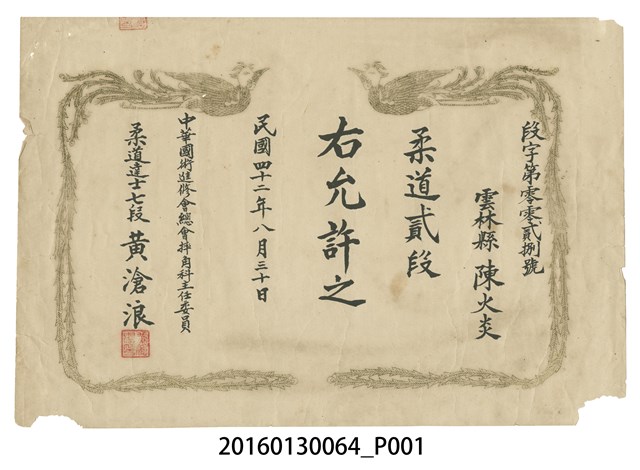 段字第零零貳捌號
雲林縣 陳火炎
柔道貳段
右允許之
民國四十二年八月三十日
中華國術進修會總會摔角科主任委員
柔道達士七段 黃滄浪
20160130064_P001